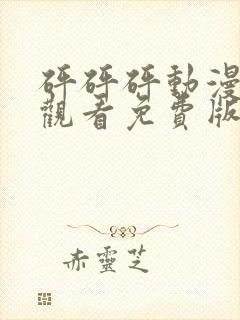 砰砰砰動漫
觀看免費版
赤靈芝